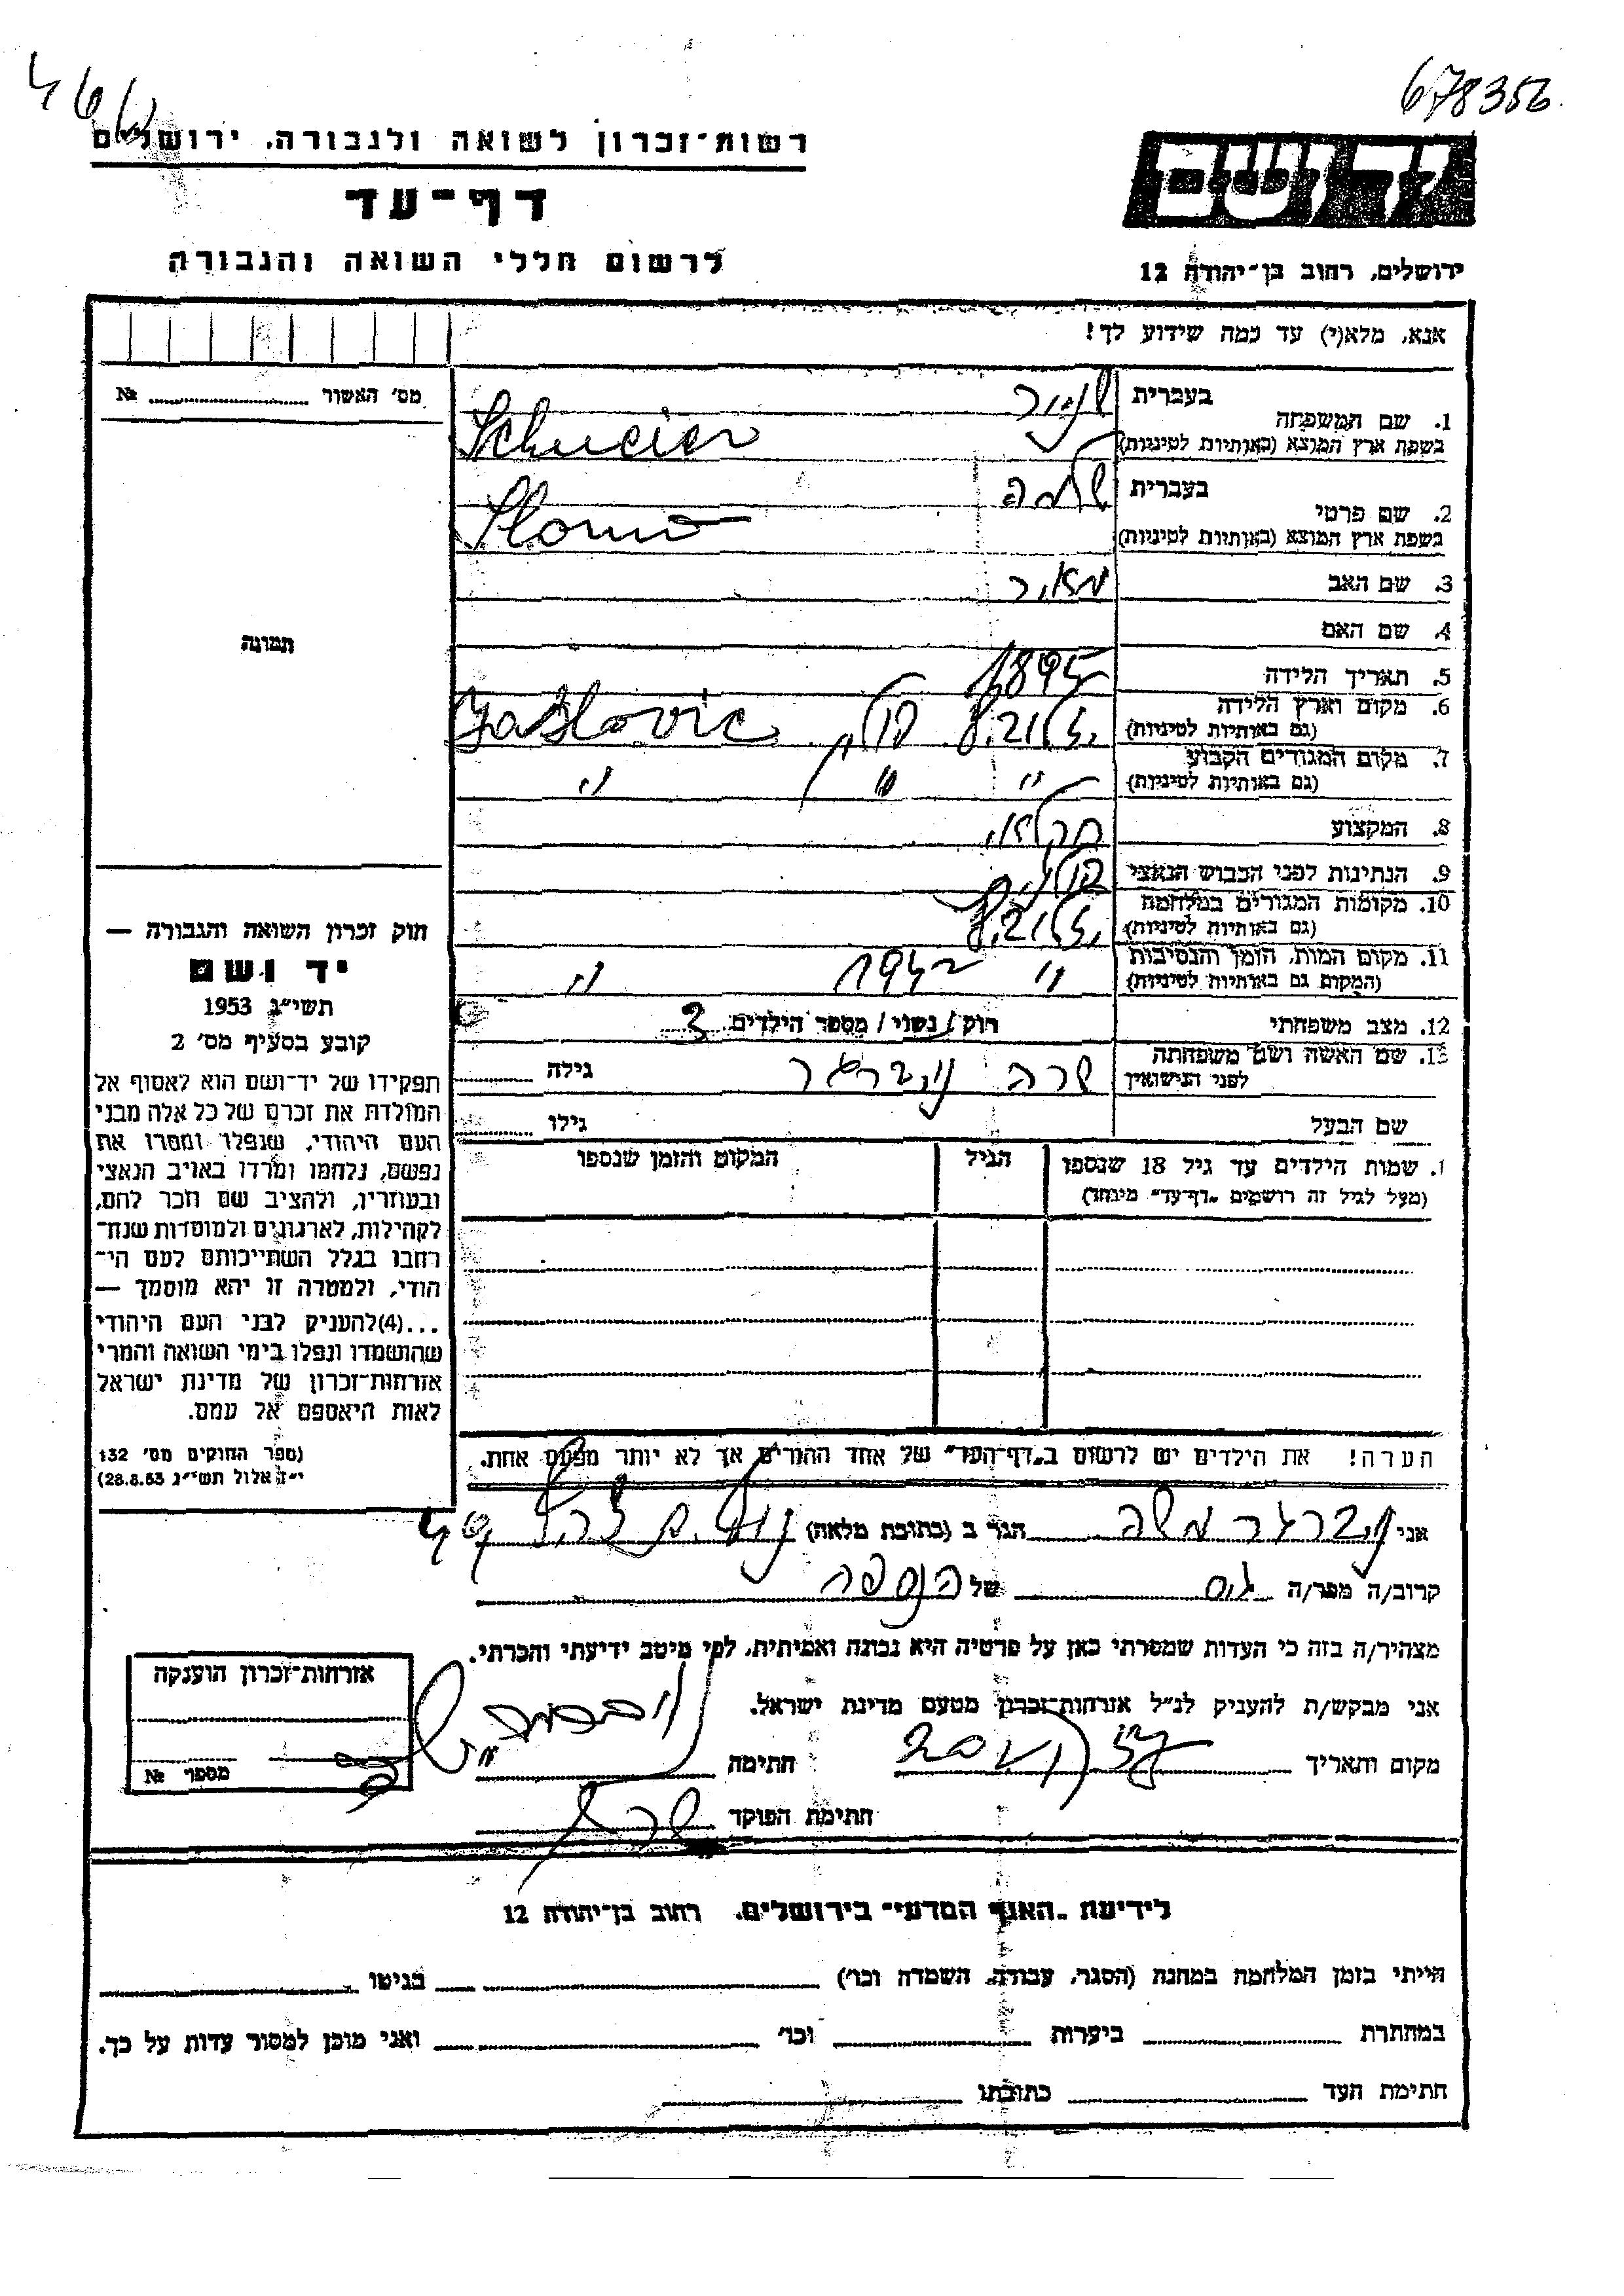 678356
רשות-זכרון לשואה ולגבורה, ירושלים
יד ושם
דף-עד
לרשום חללי השואה והגבורה
ירושלים, רחוב בן-יהודה 12
אנא, מלא(י) עד כמה שידוע לך!
מס' האשור № 
1. שם המשפחה
בעברית
בשפת ארץ המוצא (באותיות לטיניות)
2. שם פרטי
בעברית שלמה
בשפת ארץ המוצא (באותיות לטיניות)
3. שם האב מאיר
4. שם האם
5. תאריך הלידה 1895
6. מקום וארץ הלידה
(גם באותיות לטיניות)
7. מקום המגורים הקבוע " " "
(גם באותיות לטיניות)
8. המקצוע חקלאי
9. הנתינות לפני הכבוש הנאצי
10. מקומות המגורים במלחמה
(גם באותיות לטיניות)
11. מקום המות, הזמן והנסיבות " 1942 "
(המקום גם באותיות לטיניות)
12. מצב משפחתי רוק / נשוי / מספר הילדים 3
13. שם האשה ושם משפחתה שרה וינברגר גילה
לפני הנישואין
שם הבעל גילו
שמות הילדים עד גיל 18 שנספו הגיל המקום והזמן שנספו
(מעל לגיל זה רושמים "דף-עד" מיוחד)
הערה! את הילדים יש לרשום ב"דף-העד" של אחד ההורים אך לא יותר מפעם אחת.
תמונה
חוק זכרון השואה והגבורה —
יד ושם
תשי"ג 1953
קובע בסעיף מס' 2
תפקידו של יד-ושם הוא לאסוף אל
המולדת את זכרם של כל אלה מבני
העם היהודי, שנפלו ומסרו את
נפשם, נלחמו ומרדו באויב הנאצי
ובעוזריו, ולהציב שם וזכר להם,
לקהילות, לארגונים ולמוסדות שנח-
רחבו בגלל השתייכותם לעם הי-
הודי, ולמטרה זו יהא מוסמך —
...(4)להעניק לבני העם היהודי
שהושמדו ונפלו בימי השואה והמרי
אזרחות-זכרון של מדינת ישראל
לאות היאספם אל עמם.
(ספר החוקים מס' 132
י"ז אלול תשי"ג 28.8.53)
אני וינברגר משה הגר ב (כתובת מלאה)
קרוב/ה מפר/ה גיס של הנספה
מצהיר/ה בזה כי העדות שמסרתי כאן על פרטיה היא נכונה ואמיתית, לפי מיטב ידיעתי והכרתי.
אני מבקש/ת להעניק לנ"ל אזרחות-זכרון מטעם מדינת ישראל.
מקום ותאריך חתימה
חתימת הפוקד
אזרחות-זכרון הוענקה
מספר №
לידיעת "האגף המדעי" בירושלים, רחוב בן-יהודה 12
הייתי בזמן המלחמה במחנה (הסגר, עבודה, השמדה וכו') בגיטו
במחתרת ביערות וכו' ואני מוכן למסור עדות על כך.
חתימת העד כתובתו